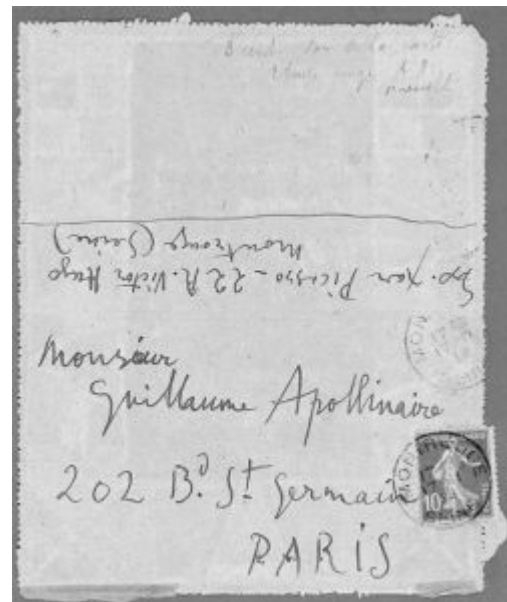 Exp. par Picasso - 22 R. Victor Hugo
Montrouge (Seine)
Monsieur
Guillaume Apollinaire
202 Bd. St Germain
PARIS
MONTROUGE
10